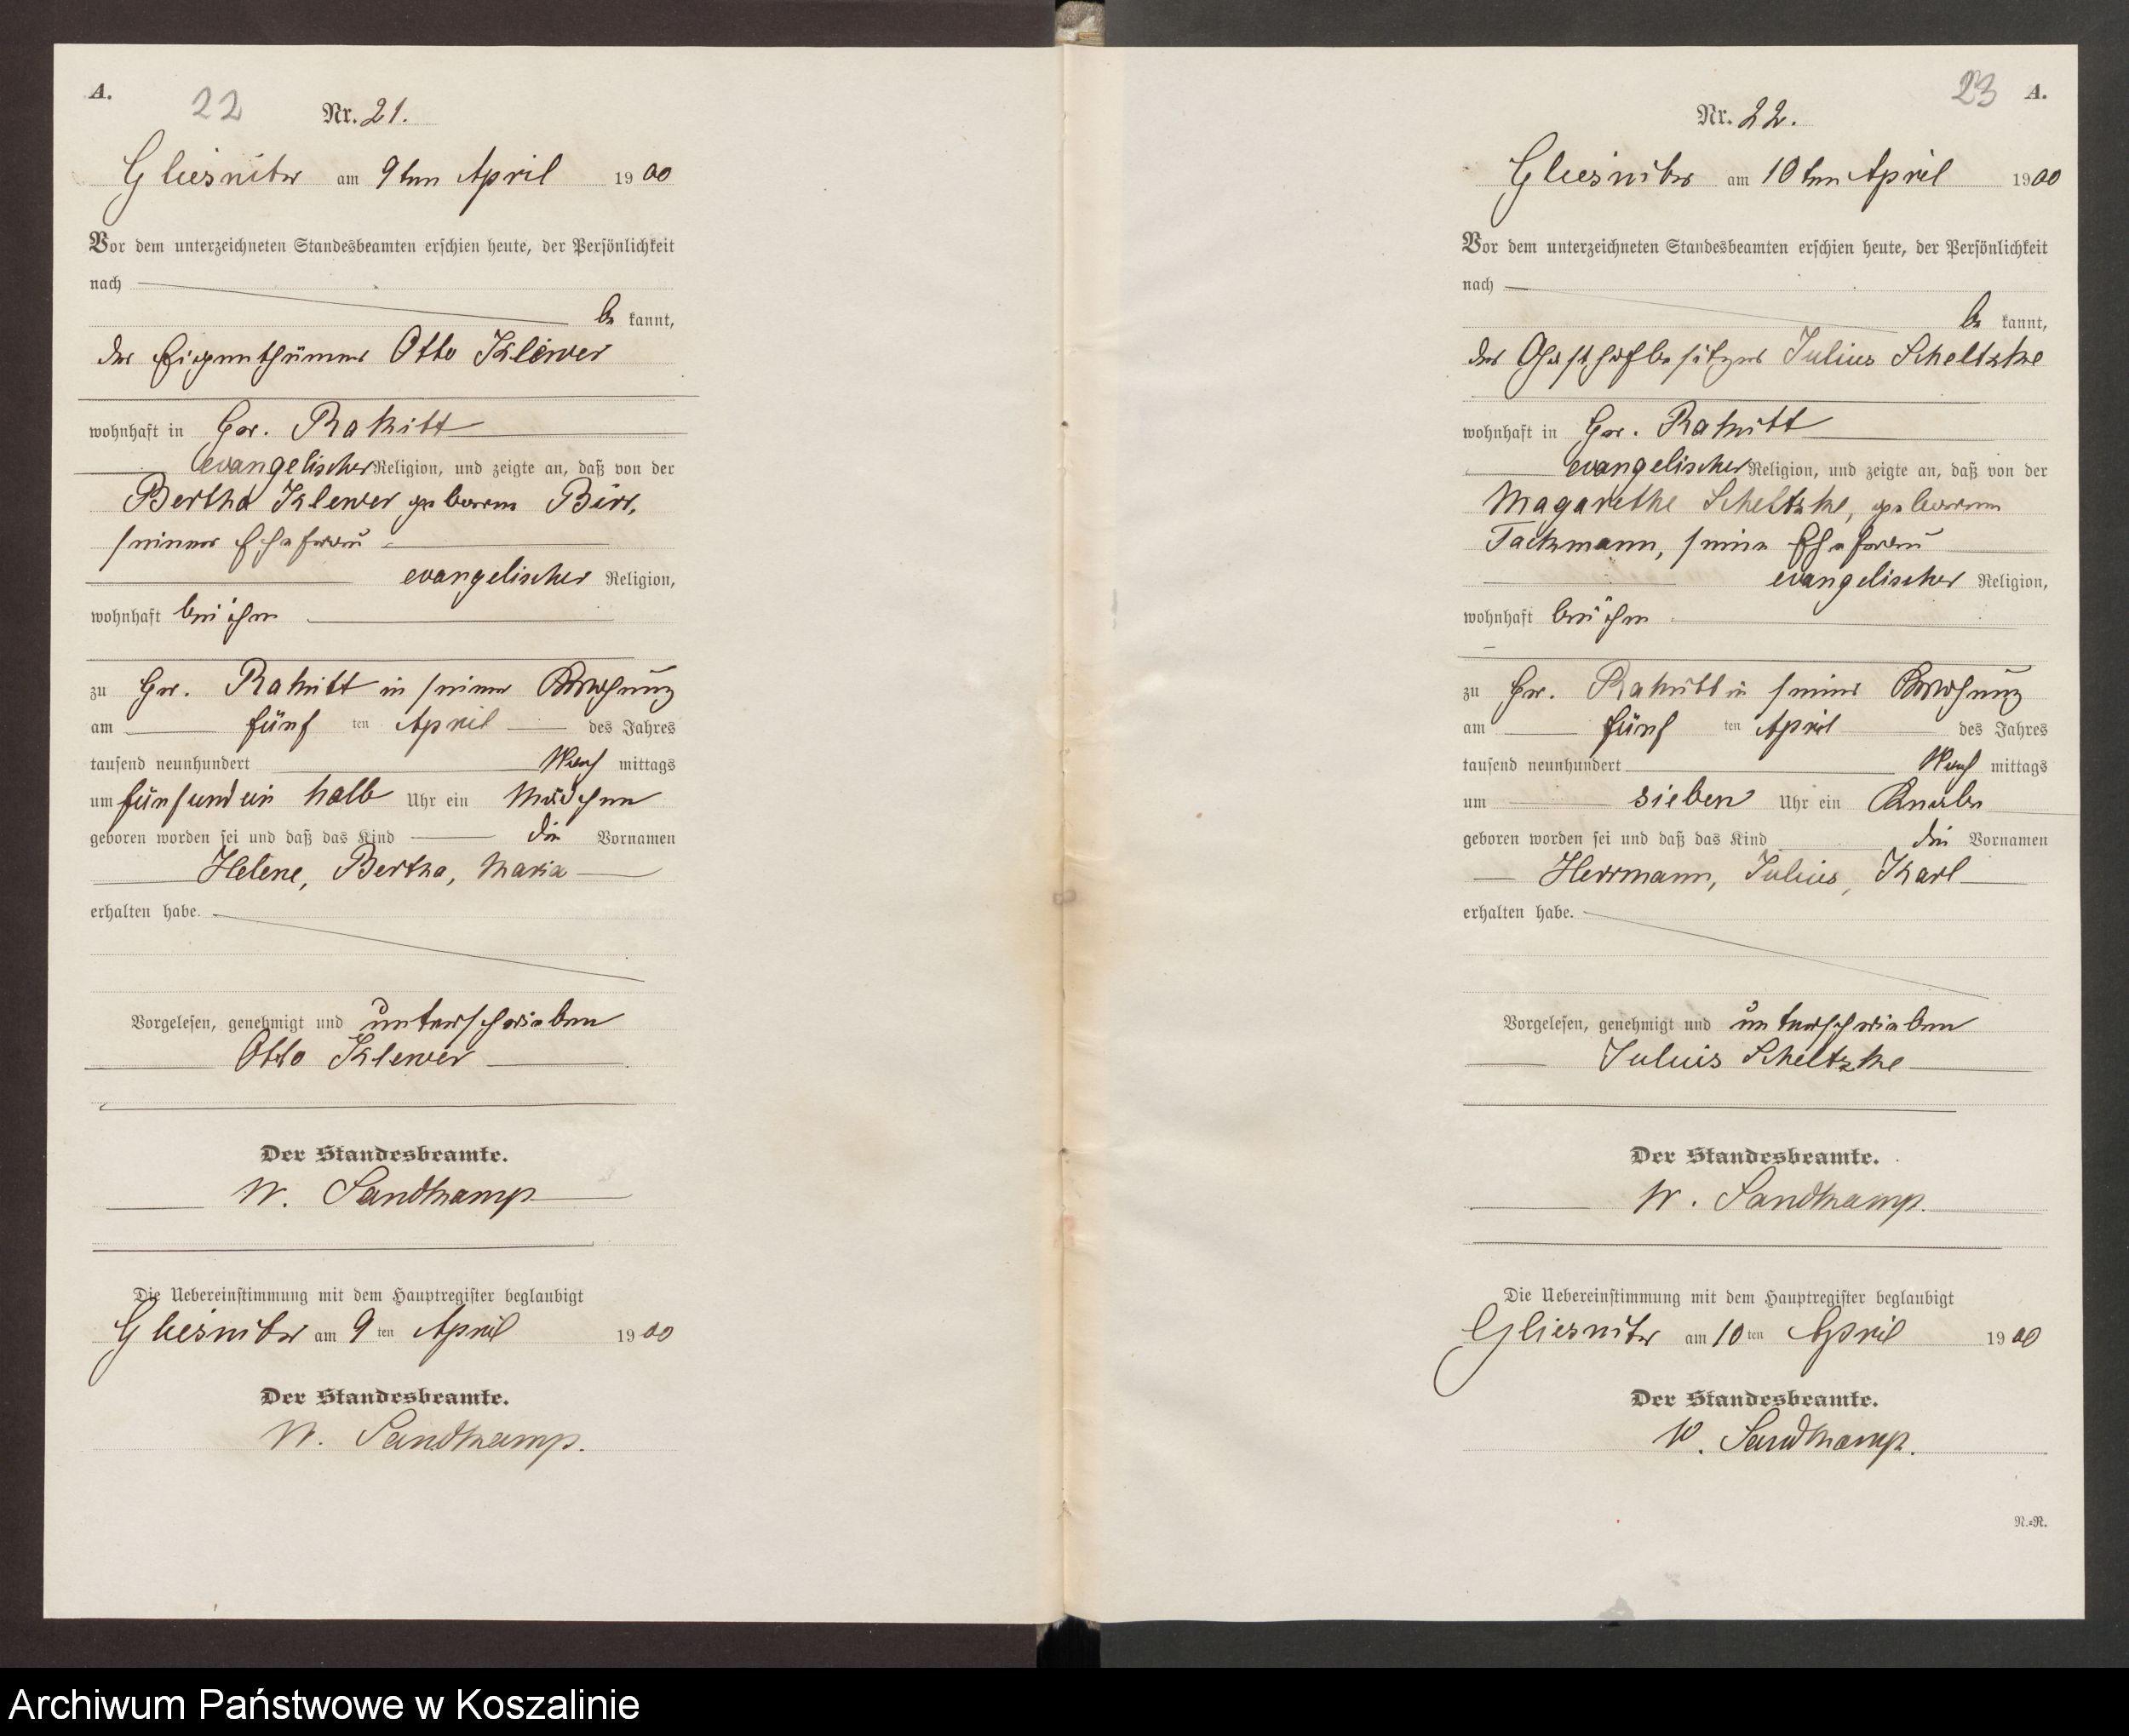 A.
22
Nr. 21.
Gliesnitz am 9ten April 1900
Vor dem unterzeichneten Standesbeamten erschien heute, der Persönlichkeit
nach
be kannt,
der Eigenthümer Otto Klewer
wohnhaft in Gr. Rakitt
evangelischer Religion, und zeigte an, daß von der
Bertha Klewer geborene Birr,
seiner Ehefrau
evangelischer Religion,
wohnhaft bei ihm
zu Gr. Rakitt in seiner Wohnung
am fünf ten April des Jahres
tausend neunhundert Nach mittags
um fünfundein halb Uhr ein Mädchen
geboren worden sei und daß das Kind die Vornamen
Helene, Bertha, Maria
erhalten habe.
Vorgelesen, genehmigt und unterschrieben
Otto Klewer
Der Standesbeamte.
W. Sandkamp
Die Uebereinstimmung mit dem Hauptregister beglaubigt
Gliesnitz am 9 ten April 1900
Der Standesbeamte.
W. Sandkamp.
23 A.
Nr. 22.
Gliesnitz am 10ten April 1900
Vor dem unterzeichneten Standesbeamten erschien heute, der Persönlichkeit
nach
be kannt,
der Gasthofbesitzer Julius Scheltzke
wohnhaft in Gr. Rakitt
evangelischer Religion, und zeigte an, daß von der
Magarethe Scheltzke, geborene
Tackmann, seine Ehefrau
evangelischer Religion,
wohnhaft bei ihm
zu Gr. Rakitt in seiner Wohnung
am fünf ten April des Jahres
tausend neunhundert Nach mittags
um sieben Uhr ein Knabe
geboren worden sei und daß das Kind die Vornamen
Herrmann, Julius, Karl
erhalten habe.
Vorgelesen, genehmigt und unterschrieben
Julius Scheltzke
Der Standesbeamte.
W. Sandkamp.
Die Uebereinstimmung mit dem Hauptregister beglaubigt
Gliesnitz am 10 ten April 1900
Der Standesbeamte.
W. Sandkamp.
N.=R.
Archiwum Państwowe w Koszalinie